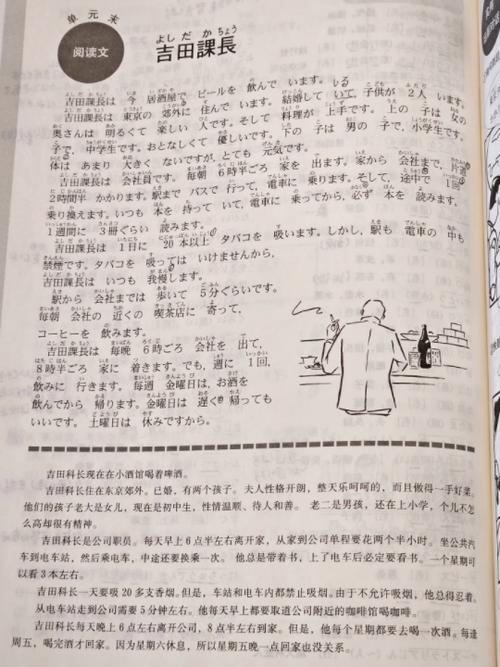 单元末
阅读文
吉田課長
吉田課長は 今 居酒屋で ビールを 飲んで います。
吉田課長は 東京の 郊外に 住んで います。結婚して いて、子供が 2人 います。
奥さんは 明るくて 楽しい 人です。そして 料理が 上手です。上の 子は 女の
子で、中学生です。おとなしくて 優しいです。下の 子は 男の 子で、小学生です。
体は あまり 大きく ないですが、とても 元気です。
吉田課長は 会社員です。毎朝 6時半ごろ 家を 出ます。家から 会社まで、片道
2時間半 かかります。駅まで バスで 行って、電車に 乗ります。そして、途中で 1回
乗り換えます。いつも 本を 持って いて、電車に 乗ってから、必ず 本を 読みます。
1週間に 3冊ぐらい 読みます。
吉田課長は 1日に 20本以上 タバコを 吸います。しかし、駅も 電車の 中も
禁煙です。タバコを 吸っては いけませんから、
吉田課長は いつも 我慢します。
駅から 会社までは 歩いて 5分ぐらいです。
毎朝 会社の 近くの 喫茶店に 寄って、
コーヒーを 飲みます。
吉田課長は 毎晩 6時ごろ 会社を 出て、
8時半ごろ 家に 着きます。でも、週に 1回、
飲みに 行きます。毎週 金曜日は、お酒を
飲んでから 帰ります。金曜日は 遅く 帰っても
いいです。土曜日は 休みですから。
吉田科长现在在小酒馆喝着啤酒。
吉田科长住在东京郊外。已婚，有两个孩子。夫人性格开朗，整天乐呵呵的，而且做得一手好菜。
他们的孩子老大是女儿，现在是初中生，性情温顺、待人和善。 老二是男孩，还在上小学，个儿不怎
么高却很有精神。
吉田科长是公司职员。每天早上6点半左右离开家，从家到公司单程要花两个半小时。坐公共汽
车到电车站，然后乘电车，中途还要换乘一次。 他总是带着书，上了电车后必定要看书。一个星期可
以看3本左右。
吉田科长一天要吸20多支香烟。但是，车站和电车内都禁止吸烟。由于不允许吸烟，他总得忍着。
从电车站走到公司需要5分钟左右。他每天早上都要取道公司附近的咖啡馆喝咖啡。
吉田科长每天晚上6点左右离开公司，8点半左右到家。但是，他每个星期都要去喝一次酒。每逢
周五，喝完酒才回家。因为星期六休息，所以星期五晚一点回家也没关系。